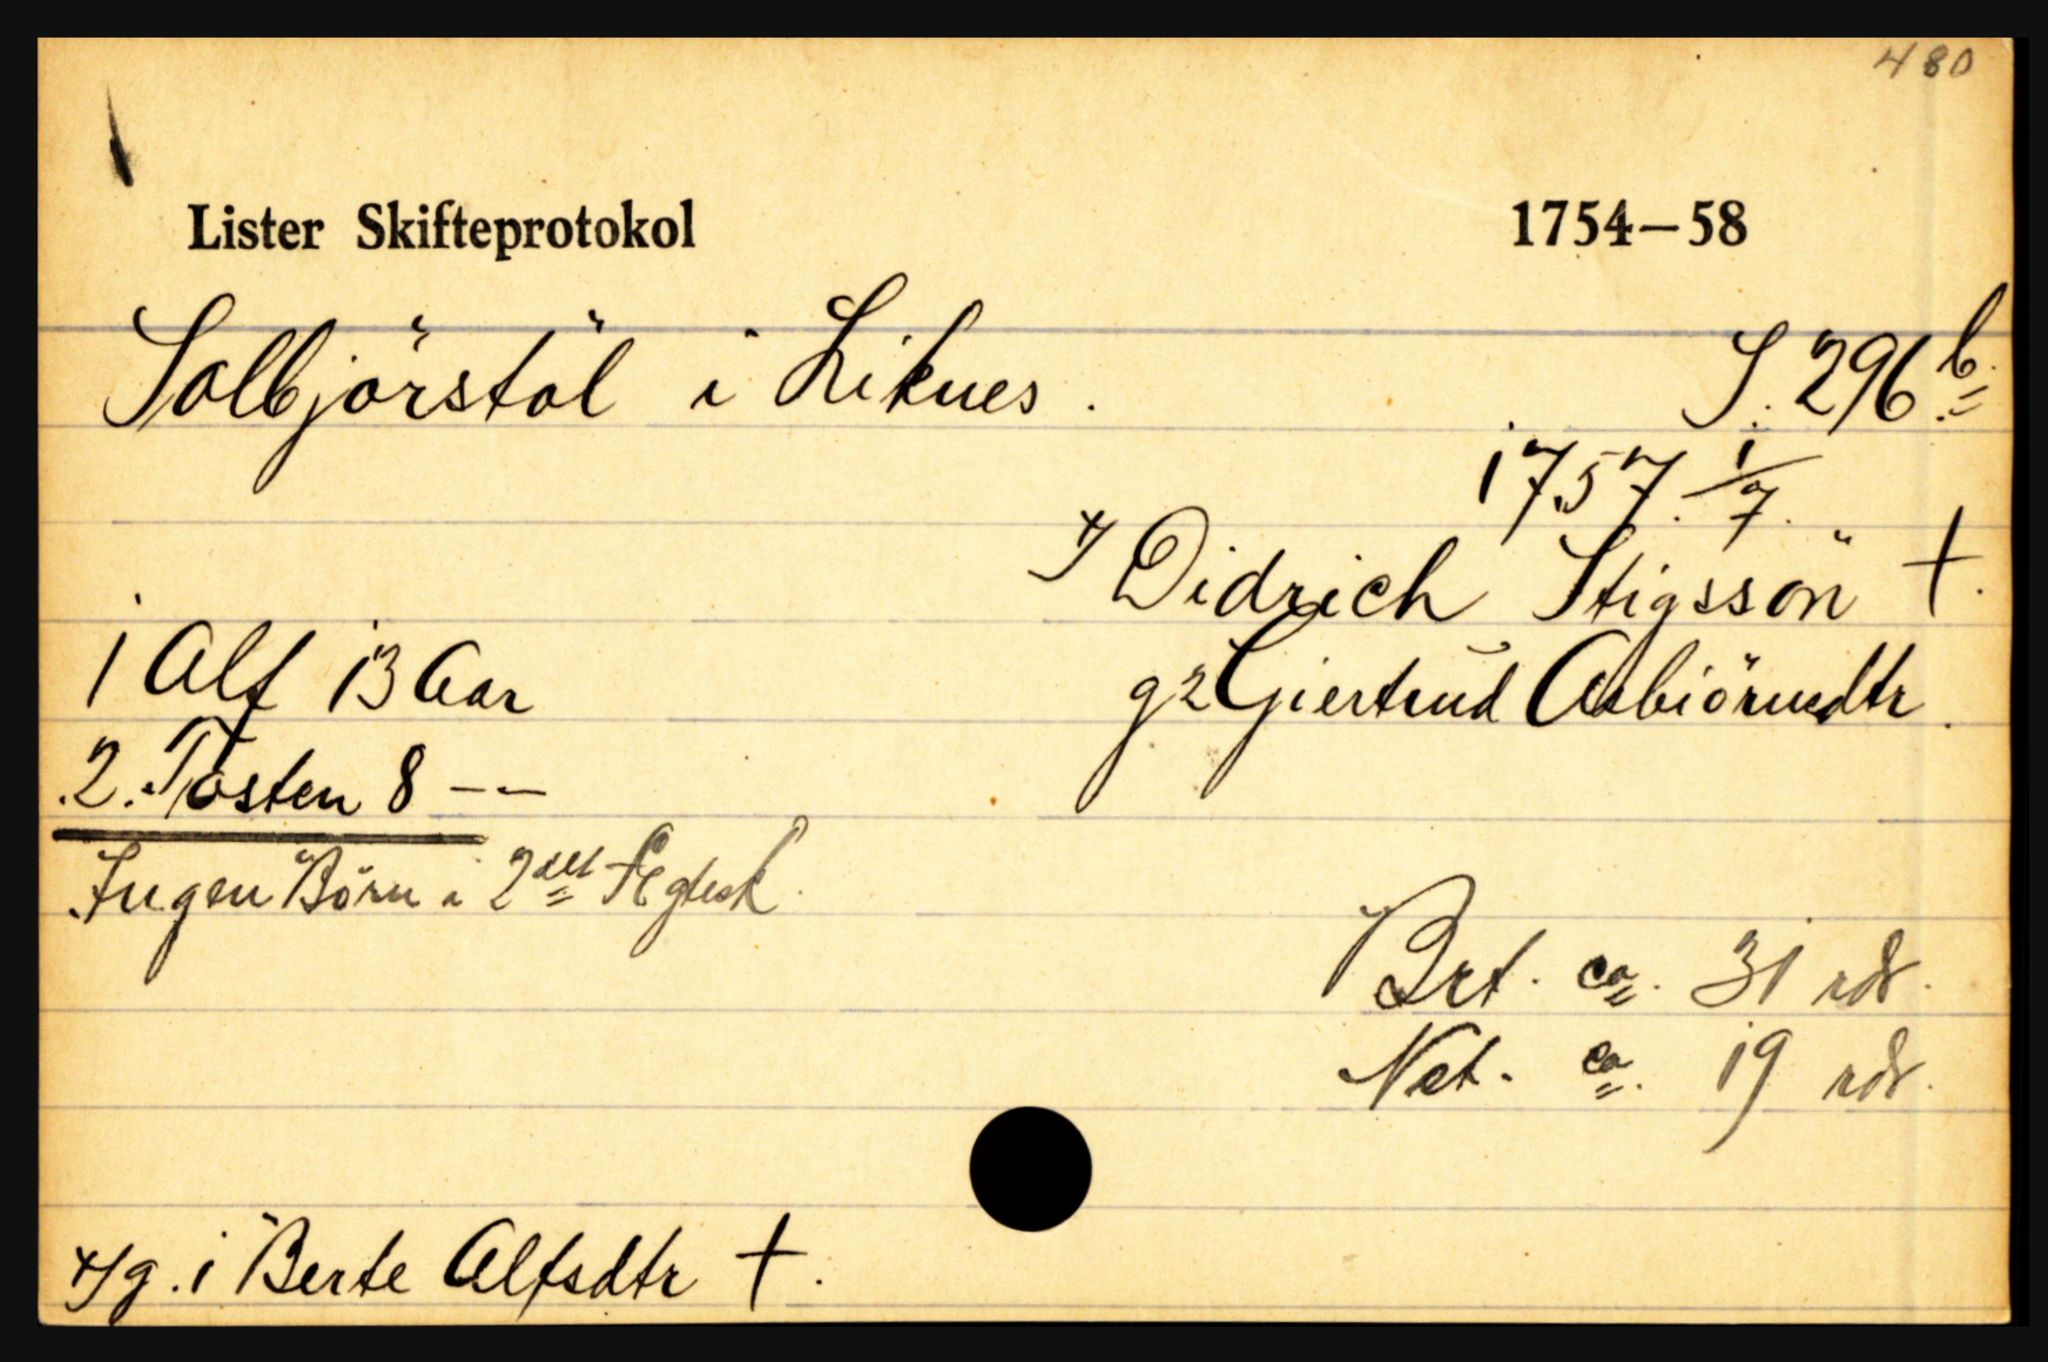 480
Lister Skifteprotokol 1754-58
Solbjörstöl i Liknes. S. 296 b.
1757. 1/7.
x/ Didrich Stigssön †.
1 Alf 13 Aar
g 2 Giertrud Asbiörnsdtr.
2. Tosten 8 --
Ingen Börn i 2det Ægtesk.
Brt. ca. 31 rdr.
Net. ca. 19 rdr.
x/ g. 1 Berte Alfsdtr †.